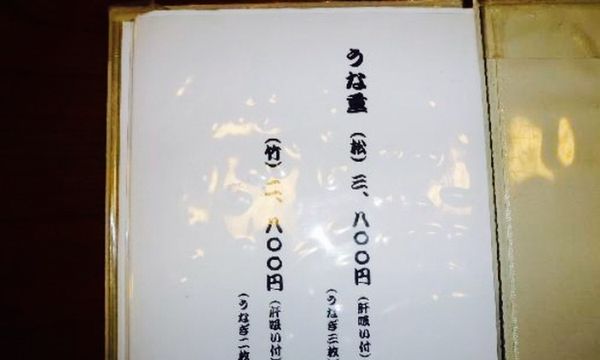 うな重 (松) 三、八〇〇円 (肝吸い付)
(うなぎ三枚
(竹) 二、八〇〇円 (肝吸い付)
(うなぎ二枚